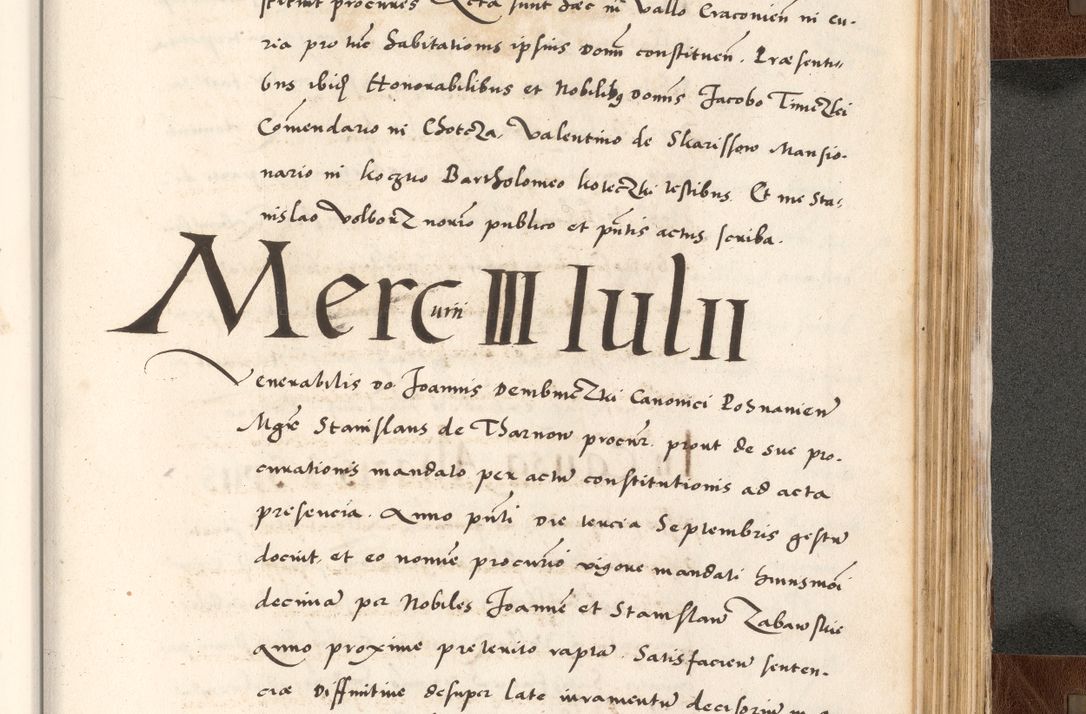 procures Acta sunt hæc in Vallo Cracovien in cu-
ria pro tūc habitationis ipsius Domī constituen. Præsenti-
bus ibid Honorabilibus et Nobilibus Domīs Jacobo
Comendario in Choteza, Valentino de Skarissow Mansio-
nario in Bartholomeo testibus. Et me Sta-
nislao Volborz norio publico et pntis actus scriba.
Mercurii III Iulii
Venerabilis Do Joannis Dembniczki Canonici Posnanien
Mgr Stanislaus de Tharnow procur. prout de sue pro-
curationis mandato per actu constitutionis ad acta
presencia. Anno pnti die tercia Septembris gestu
docuit, et eo nomie procurio vigore mandati huiusmoi
decima per Nobiles Joanne et Stanislaw Zabawskie
anno proxime preterito rapta. Satisfacien senten-
ciæ Diffinitive desuper late iuramentu decisoriu